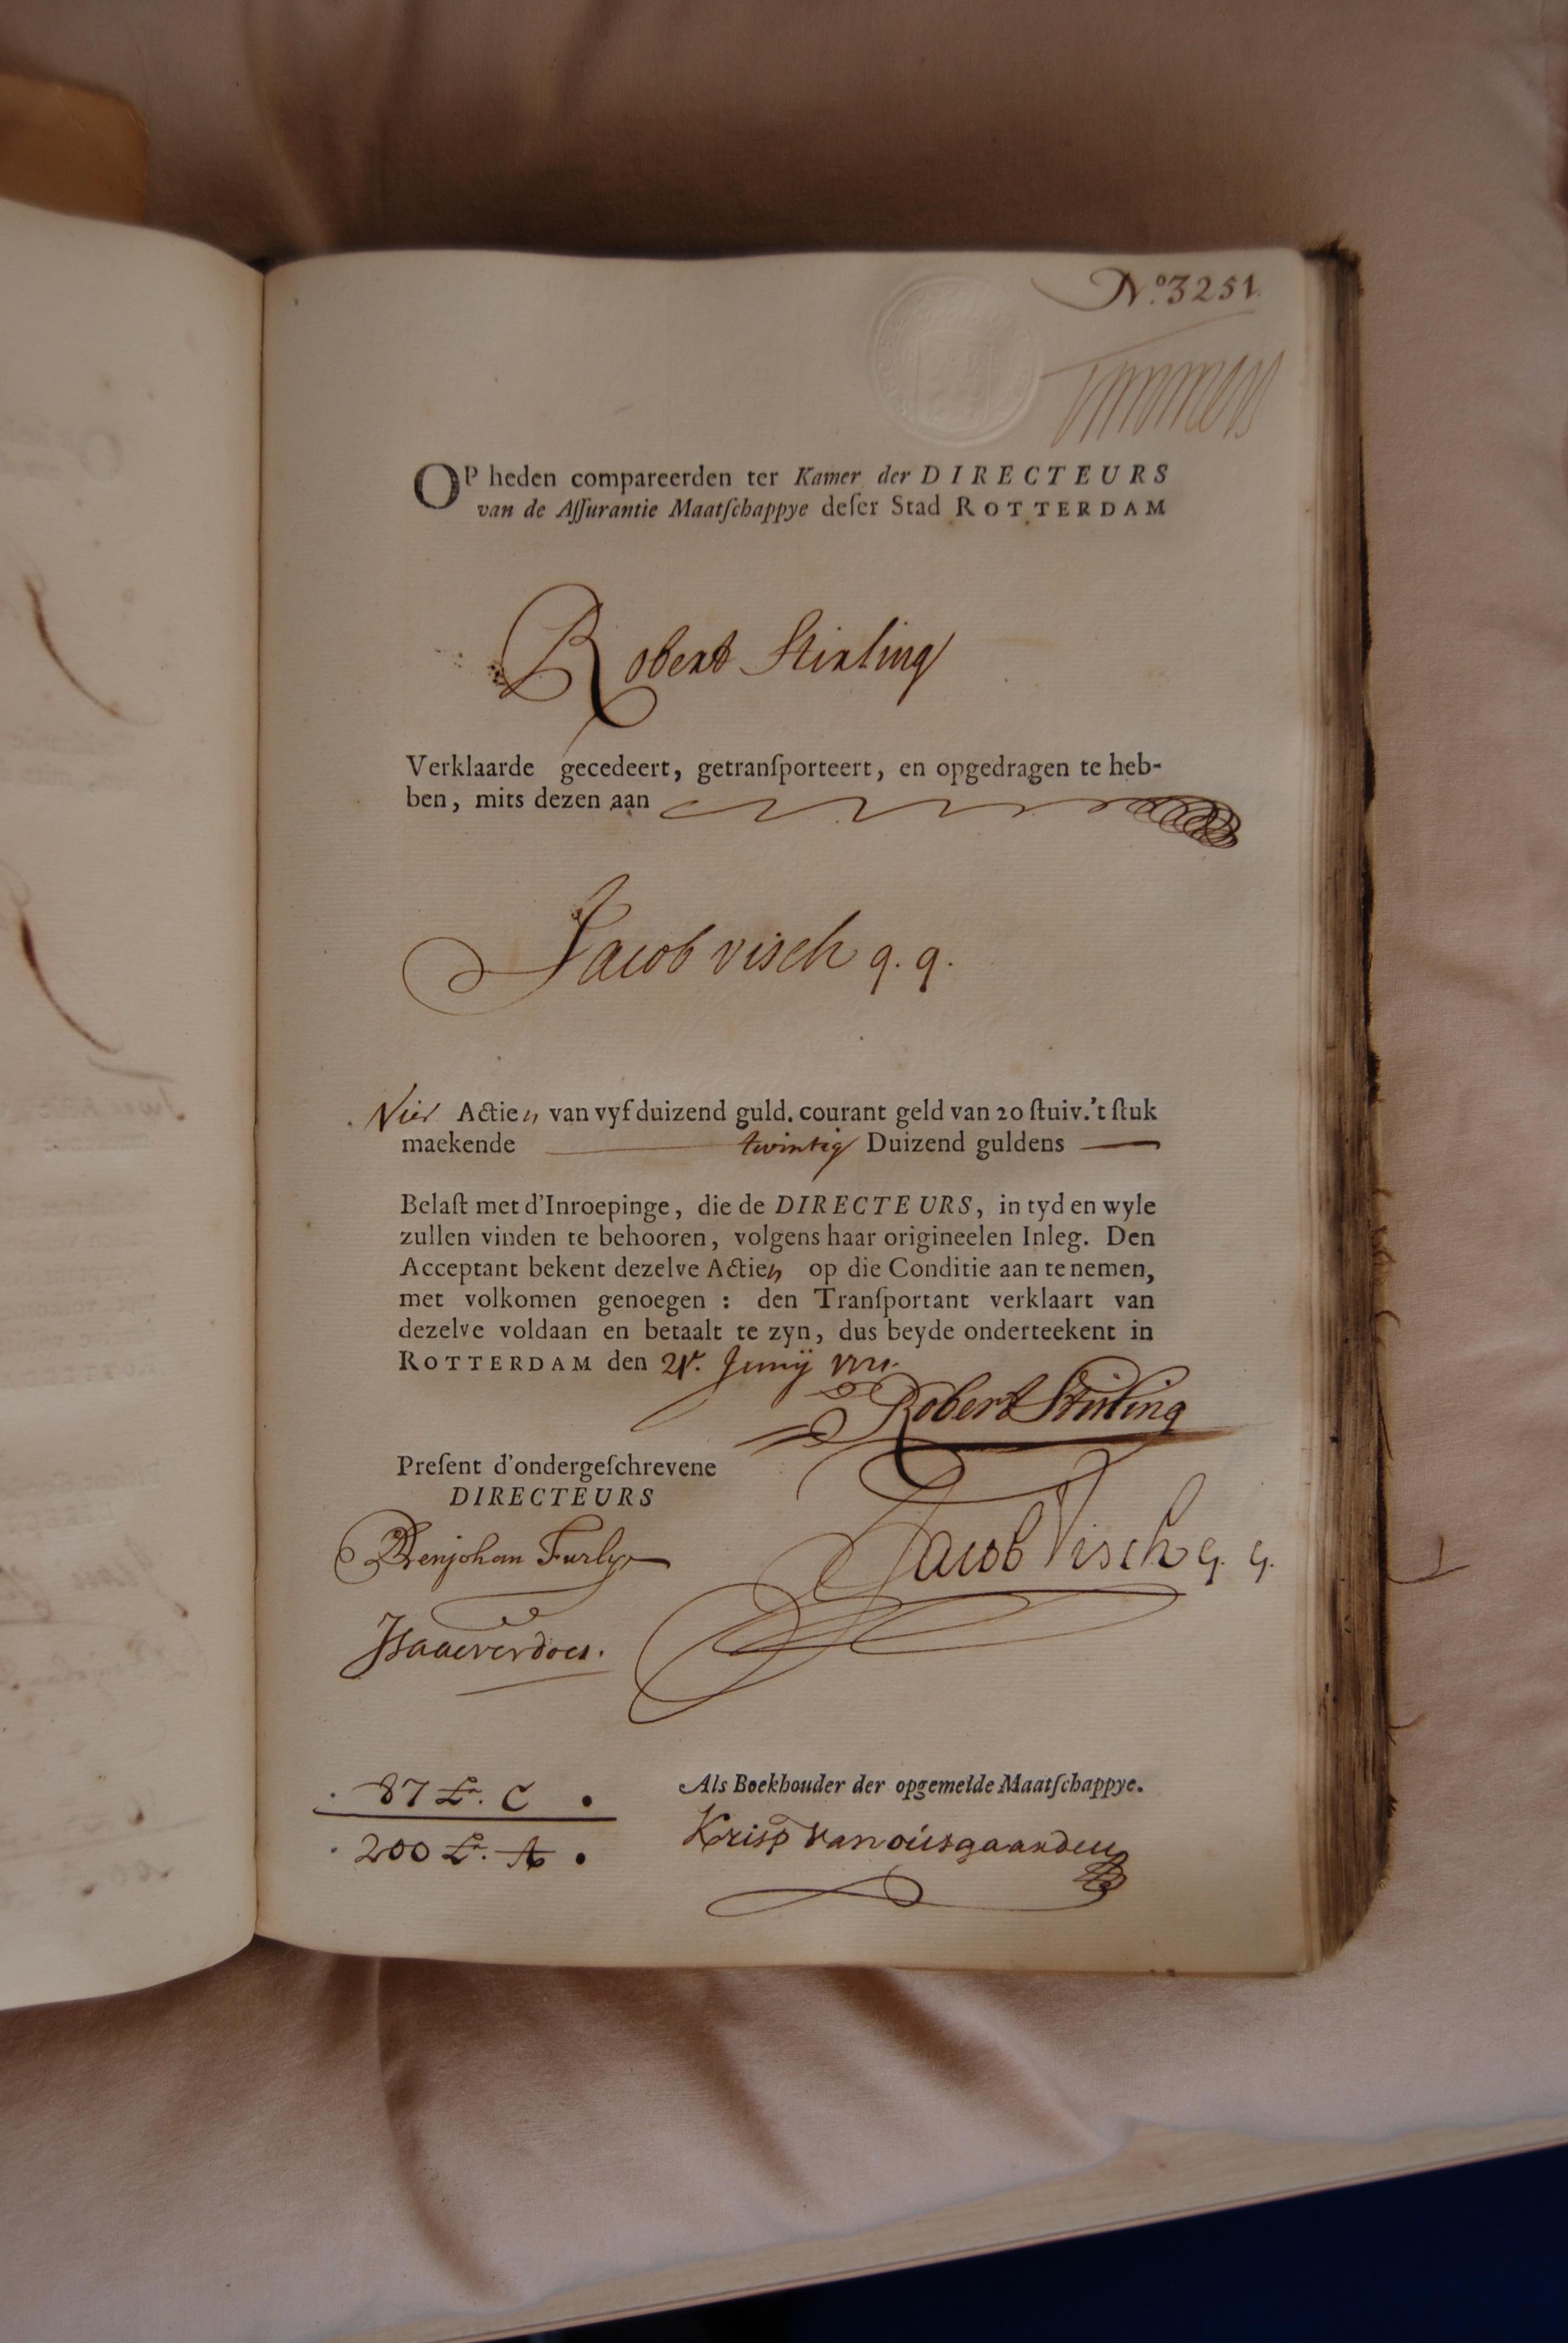 No. 3251.
OP heden compareerden ter Kamer der DIRECTEURS
van de Aſſurantie Maatſchappye deſer Stad ROTTERDAM
Robert Stirling
Verklaarde gecedeert, getranſporteert, en opgedragen te heb-
ben, mits dezen aan
Jacob visch q. q.
Vier Actien van vyf duizend guld. courant geld van 20 ſtuiv. 't ſtuk
maekende twintig Duizend guldens
Belaſt met d'Inroepinge, die de DIRECTEURS, in tyd en wyle
zullen vinden te behooren, volgens haar origineelen Inleg. Den
Acceptant bekent dezelve Actien op die Conditie aan te nemen,
met volkomen genoegen : den Tranſportant verklaart van
dezelve voldaan en betaalt te zyn, dus beyde onderteekent in
ROTTERDAM den Junij
Robert Stirling
Preſent d'ondergeſchrevene
DIRECTEURS
Benjohan Furly
Jacob Visch q. q.
Isaacverdoes.
87 Lr. C
Als Boekhouder der opgemelde Maatſchappye.
200 Lr. A